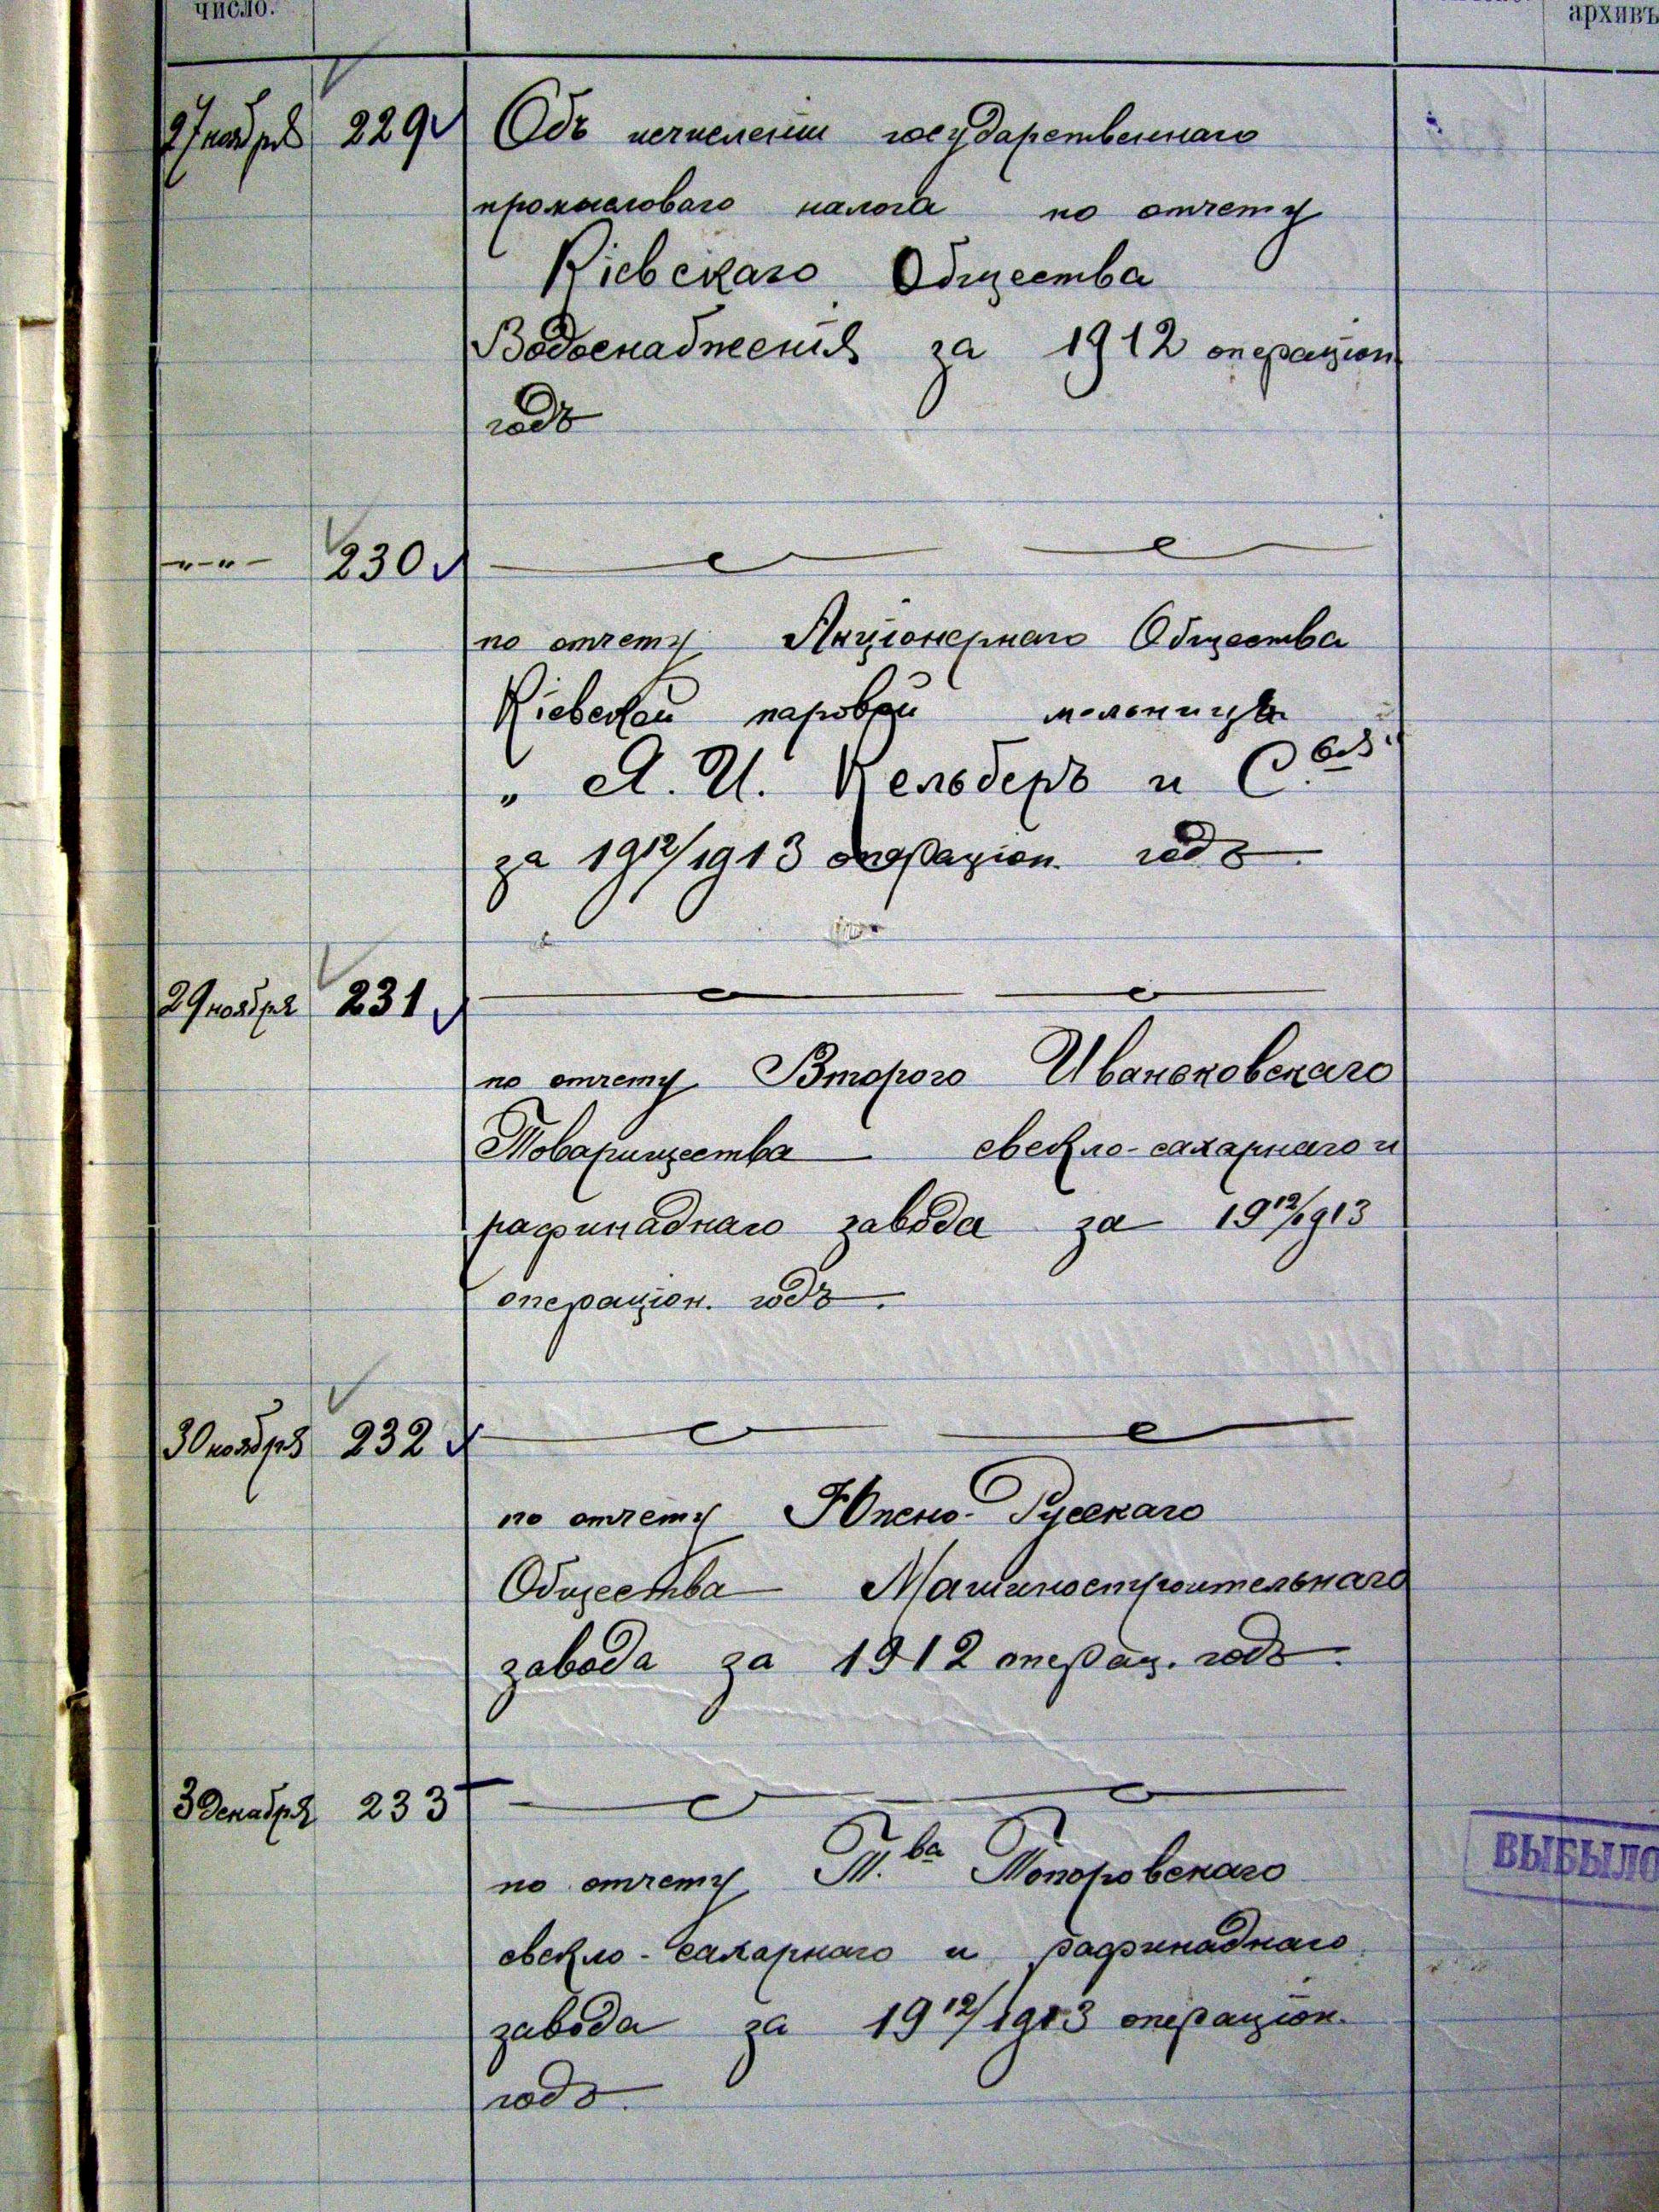 число.
архивъ
27 ноября 229 Объ исчисленіи государственнаго
промысловаго налога по отчету
Кіевскаго Общества
Водоснабженія за 1912 операціон.
годъ
—"—"— 230
по отчету Акціонернаго Общества
Кіевской паровой мельницы
„ А. И. Кельберъ и С.вья"
за 1912/1913 операціон. годъ.
29 ноября 231
по отчету Второго Иваньковскаго
Товарищества свекло-сахарнаго и
рафинаднаго завода за 1912/1913
операціон. годъ.
30 ноября 232
по отчету Южно-Русскаго
Общества Машиностроительнаго
завода за 1912 операц. годъ.
3 декабря 233
по отчету Т.ва Топоровскаго
свекло-сахарнаго и рафинаднаго
завода за 1912/1913 операціон.
годъ.
ВЫБЫЛО